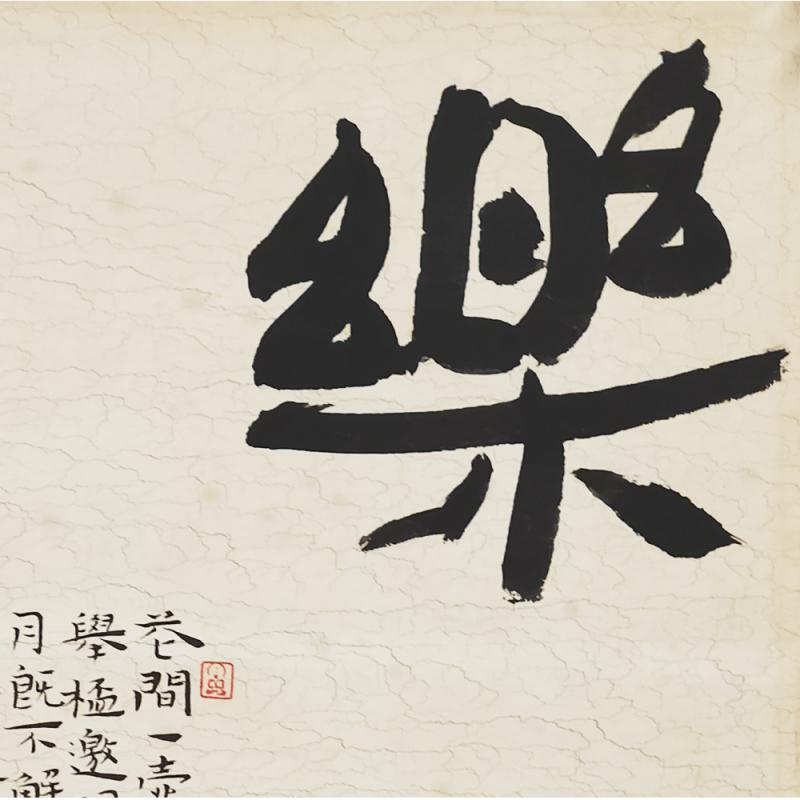 樂
花間一壺
舉杯邀明
月既不解